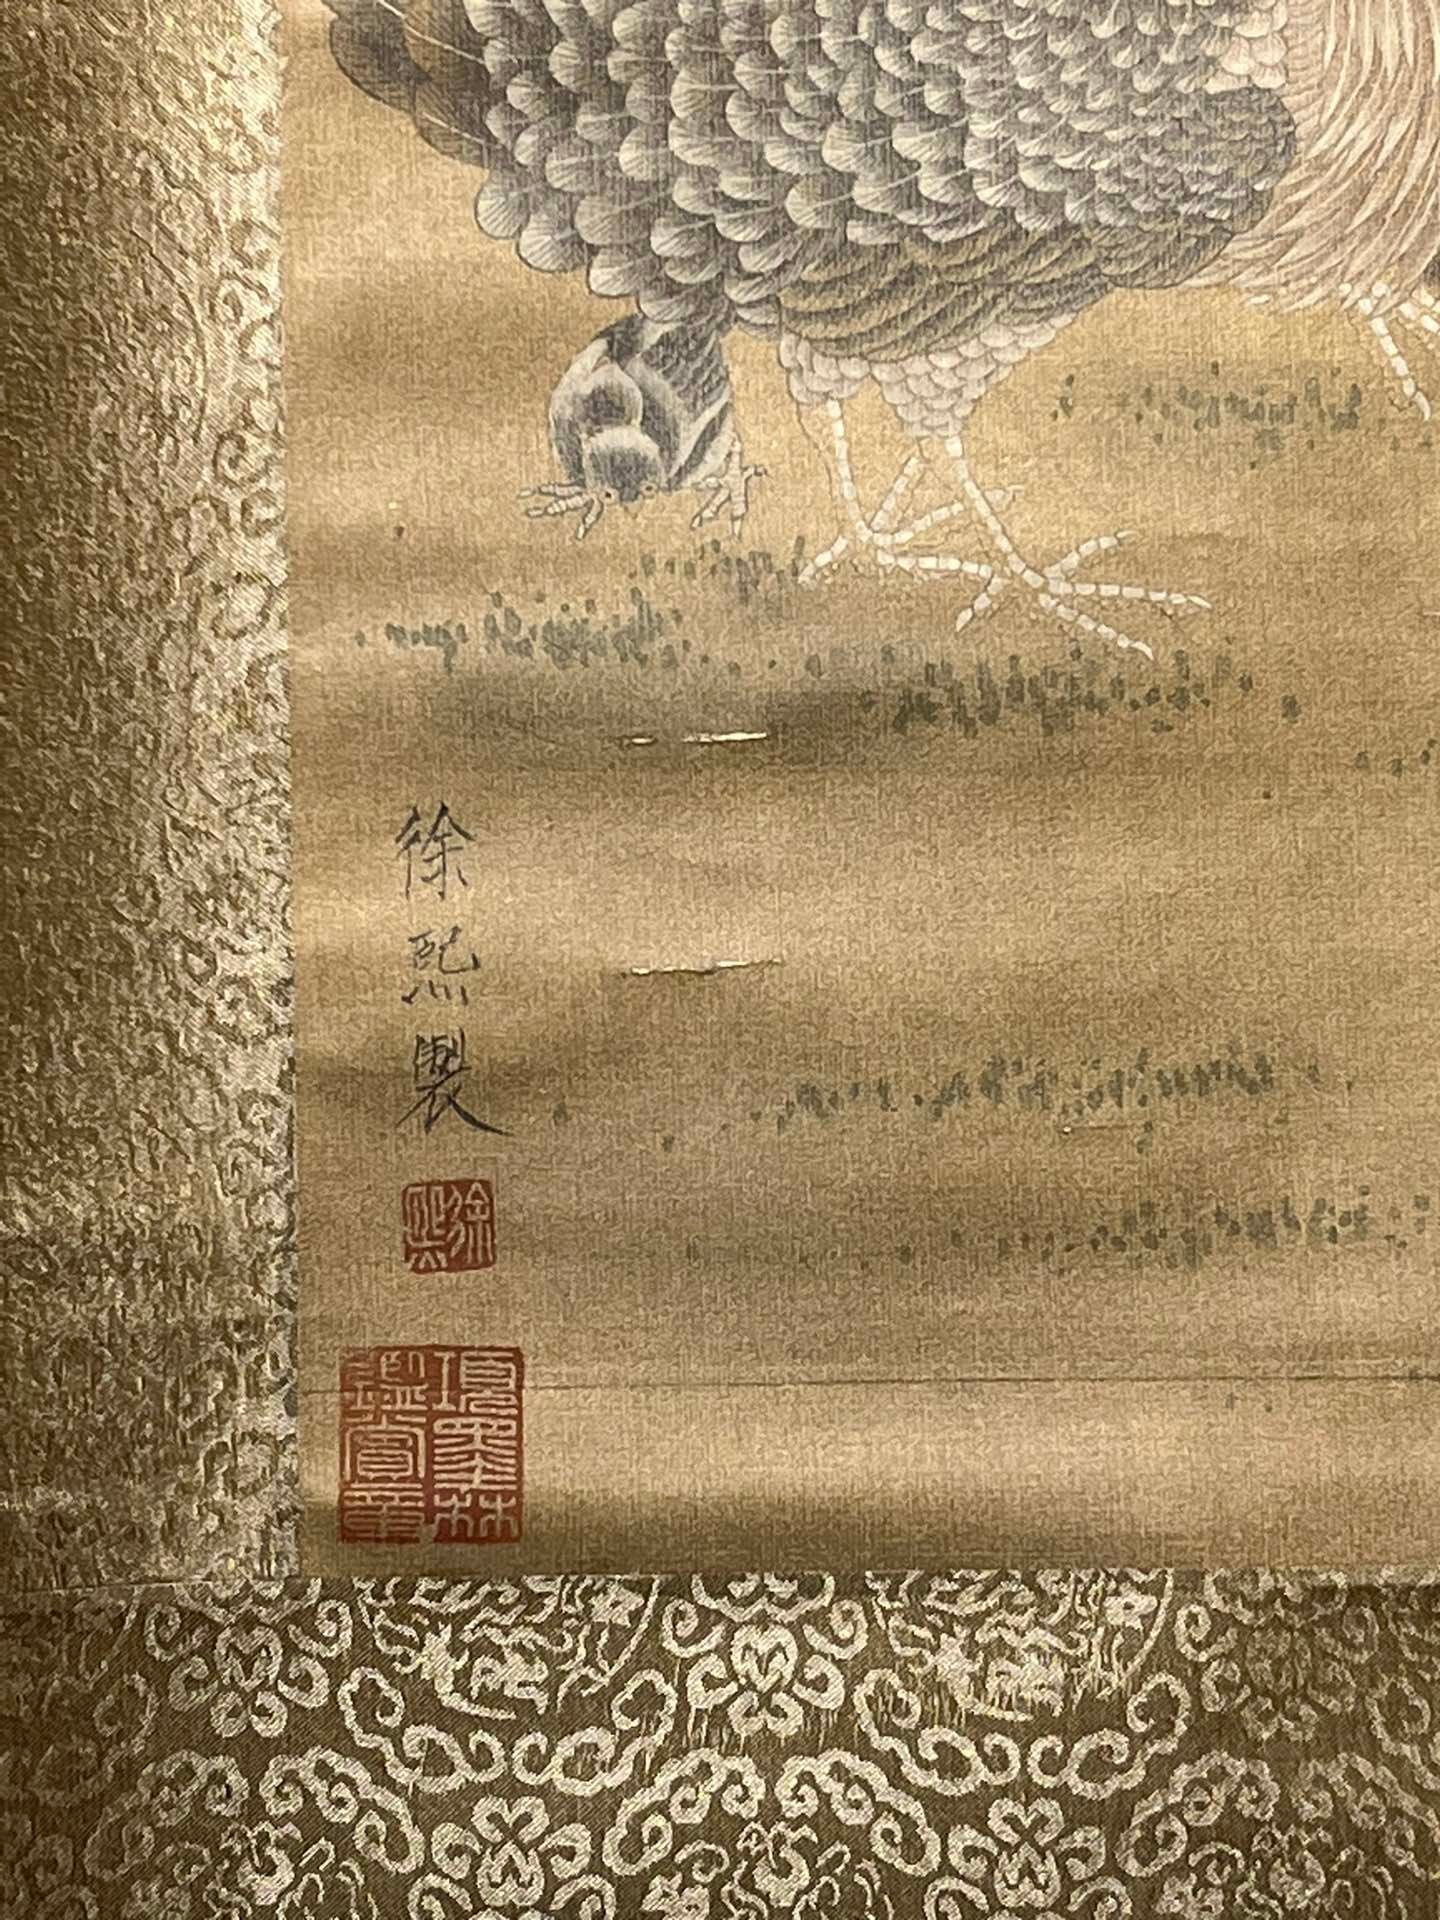 徐熙製
徐熙
項墨林
鑑賞章